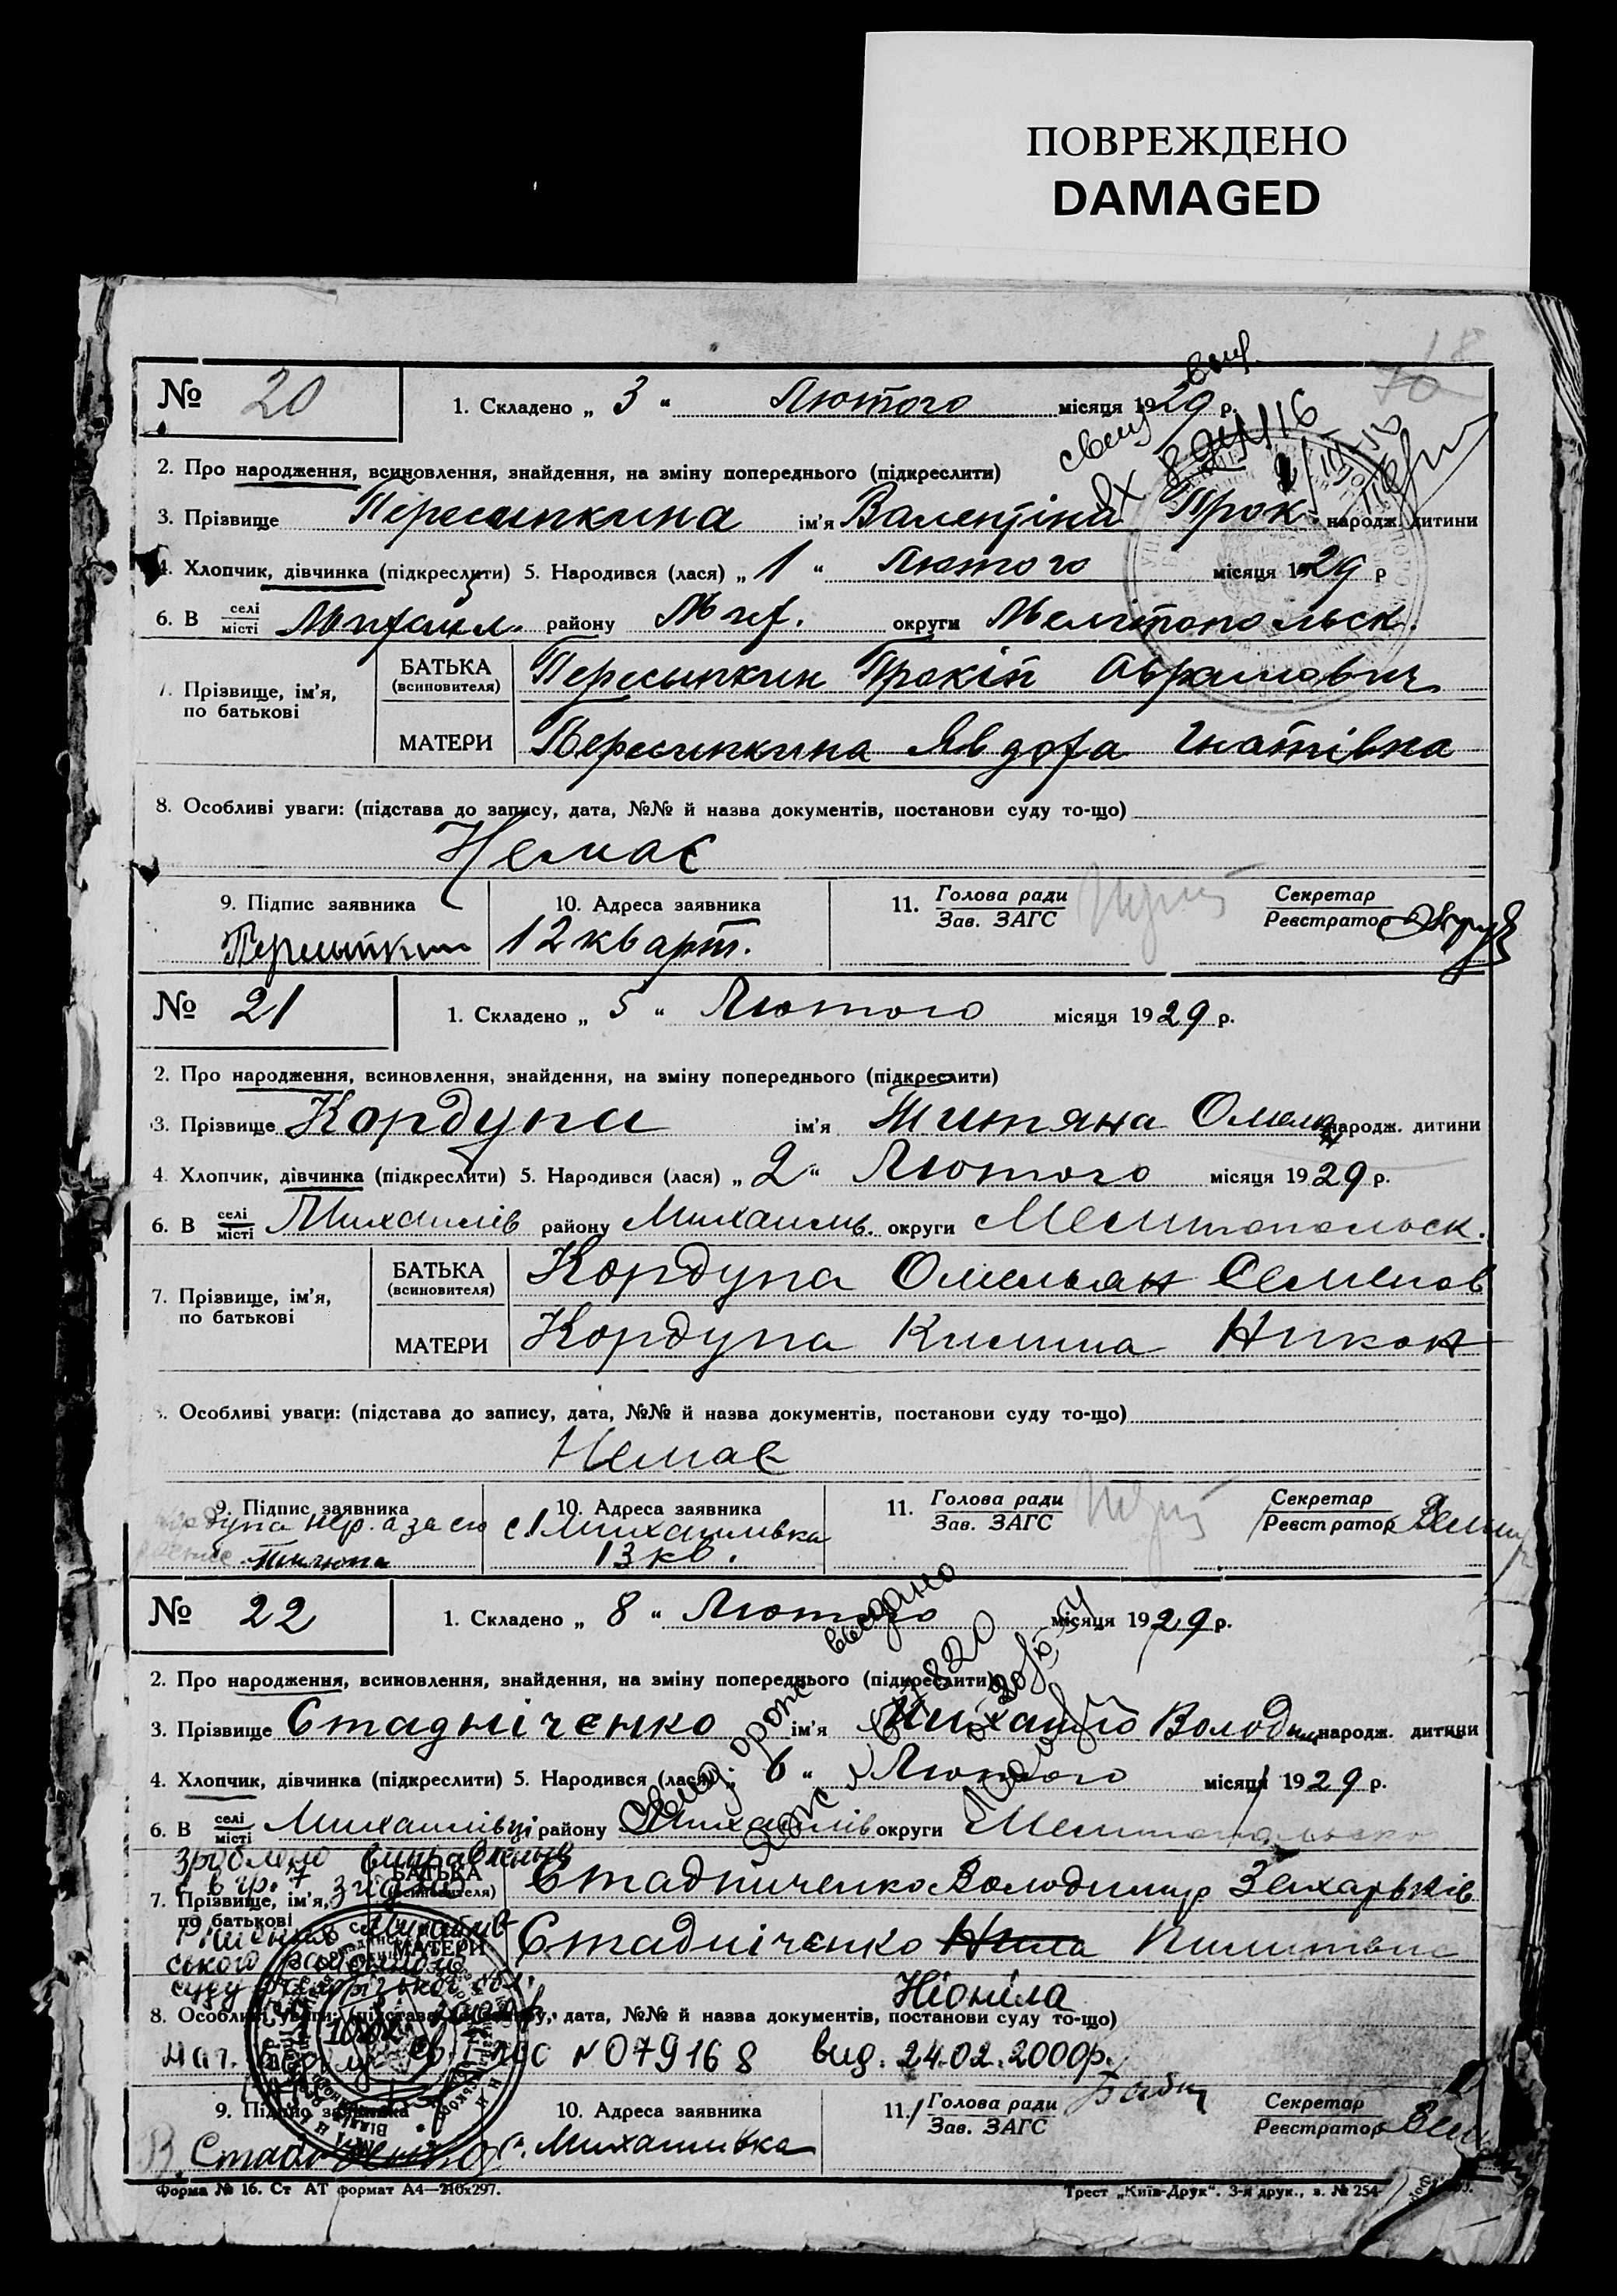 ПОВРЕЖДЕНО
DAMAGED
№ 20 1. Складено „ 3 “ Лютого місяця 1929 р.
2. Про народження, всиновлення, знайдення, на зміну попереднього (підкреслити)
3. Прізвище Пересипкина ім'я Валентіна Прок. народж. дитини
4. Хлопчик, дівчинка (підкреслити) 5. Народився (лася) „ 1 “ Лютого місяця 1929 р
6. В селі місті Михаил. району Мих. округи Мелітопольськ.
7. Прізвище, ім'я, по батькові
БАТЬКА (всиновителя) Пересыпкин Прокіп Абрамович
МАТЕРИ Пересипкина Явдоха Гнатівна
8. Особливі уваги: (підстава до запису, дата, №№ й назва документів, постанови суду то-що)
Немає
9. Підпис заявника 10. Адреса заявника 11. Голова ради Зав. ЗАГС Секретар Реєстратор
Пересыпкин 12 кварт.
№ 21 1. Складено „ 5 “ Лютого місяця 1929 р.
2. Про народження, всиновлення, знайдення, на зміну попереднього (підкреслити)
3. Прізвище Кордупа ім'я Титяна Омелян народж. дитини
4. Хлопчик, дівчинка (підкреслити) 5. Народився (лася) „ 2 “ Лютого місяця 1929 р.
6. В селі місті Михайлів району Михайлив. округи Мелитопольск.
7. Прізвище, ім'я, по батькові
БАТЬКА (всиновителя) Кордупа Омельян Семенов
МАТЕРИ Кордупа Килина Никон
8. Особливі уваги: (підстава до запису, дата, №№ й назва документів, постанови суду то-що)
Немає
9. Підпис заявника 10. Адреса заявника 11. Голова ради Зав. ЗАГС Секретар Реєстратор
с. Михайливка
13 кв.
№ 22 1. Складено „ 8 “ Лютого місяця 1929 р.
2. Про народження, всиновлення, знайдення, на зміну попереднього (підкреслити)
3. Прізвище Стадніченко ім'я Михайло Володим народж. дитини
4. Хлопчик, дівчинка (підкреслити) 5. Народився (лася) „ 6 “ Лютого місяця 1929 р.
6. В селі місті Михайлівці району Михайлів округи Мелитопольско
зроблено виправлення
в гр. 7 згідно
7. Прізвище, ім'я, по батькові
БАТЬКА (всиновителя) Стадниченко Володимир Захарьків
МАТЕРИ Стадніченко Нина Пилипівна
Ніоніла
рішення Михайлів-
ського районного
суду
8. Особливі уваги: (підстава до запису, дата, №№ й назва документів, постанови суду то-що)
№ 079168 вид. 24.02.2000р.
9. Підпис заявника 10. Адреса заявника 11. Голова ради Зав. ЗАГС Секретар Реєстратор
с. Михайливка
Форма № 16. Ст АТ формат А4—210х297. Трест „Київ-Друк“. 3-я друк., з. № 254-